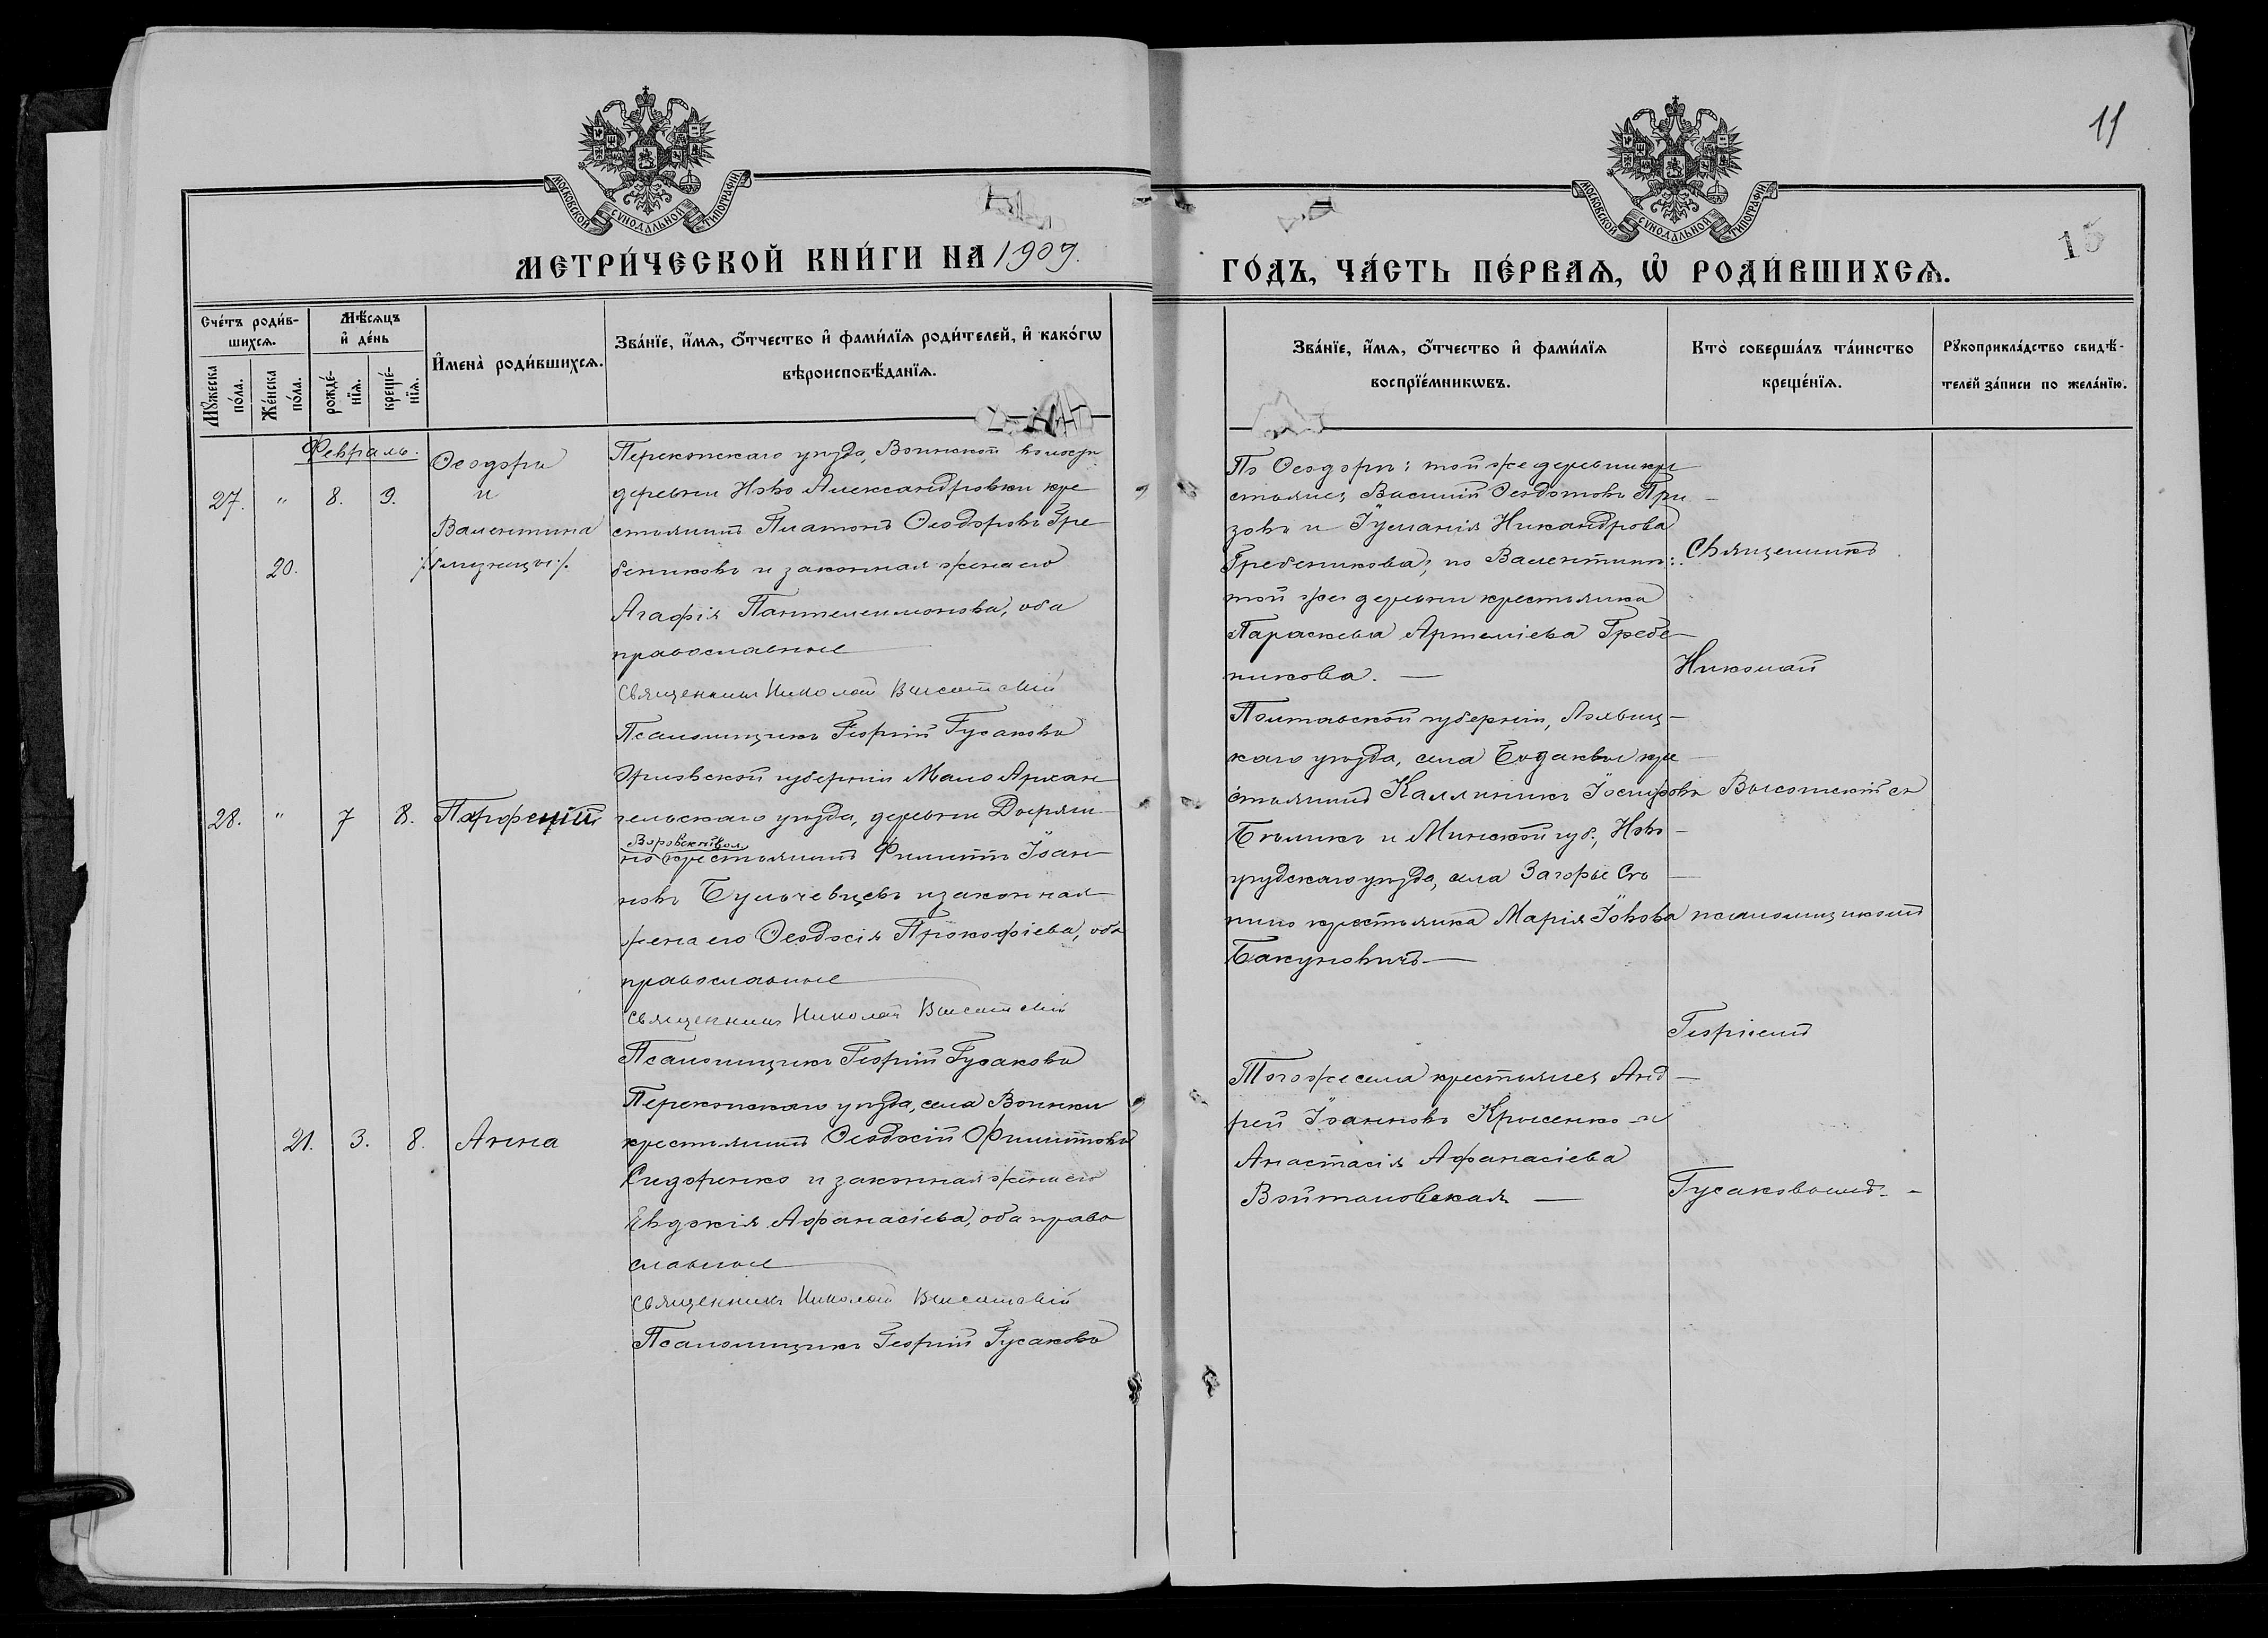 11
15
МОСКОВСКОЙ СѴНОДАЛЬНОЙ ТИПОГРАФІИ
МОСКОВСКОЙ СѴНОДАЛЬНОЙ ТИПОГРАФІИ
МЕТРИ́ЧЕСКОЙ КНИ́ГИ НА 1909.
ГО́ДЪ, ЧА́СТЬ ПЕ́РВАѦ, Ѽ РОДИ́ВШИХСѦ.
Сче́тъ роди́в-
шихсѧ.
Мꙋжеска по́ла.
Же́нска по́ла.
Мѣ́сѧцъ и҆ де́нь
рожде́-нїѧ.
креще́-нїѧ.
И҆мена̀ роди́вшихсѧ.
Зва́нїе, и҆́мѧ, ѻ҆́тчество и҆ фами́лїѧ роди́телей, и҆ како́гѡ
вѣроисповѣ́данїѧ.
Зва́нїе, и҆́мѧ, ѻ҆́тчество и҆ фами́лїѧ
воспрїе́мникѡвъ.
Кто̀ соверша́лъ та́инство
креще́нїѧ.
Рꙋкоприкла́дство свидѣ́-
телей за́писи по жела́нїю.
Февраль.
27. " 8. 9.
20.
Ѳеодоръ
и
Валентина
/близнецы/.
Перекопскаго уѣзда, Воинской волости
деревни Ново Александровки кре
стьянинъ Платонъ Ѳеодоровъ Гре
бениковъ и законная жена его
Агафія Пантелеимонова, оба
православные
Священникъ Николай Высотскій
Псаломщикъ Георгій Гусаковъ
По Ѳеодорѣ: той же деревни кре
стьянинъ Василій Ѳеодотовъ При
зовъ и Іуліанія Никандрова
Гребеникова; по Валентинѣ:
той же деревни крестьянка
Параскева Артеміева Гребе
никова.
Священникъ
Николай
Высотскій съ
псаломщикомъ
Георгіемъ
Гусаковымъ.
28. " 7 8. Парфеній
Орловской губерніи Мало Архан
гельскаго уѣзда, деревни
Воровской вол.
но крестьянинъ Филиппъ Іоан
новъ и законная
жена его Ѳеодосія Прокофіева, оба
православные
Священникъ Николай Высотскій
Псаломщикъ Георгій Гусаковъ
Полтавской губерніи, Лохвиц
каго уѣзда, села Бодаквы кре
стьянинъ Каллиникъ Іосифовъ
Бѣликъ и Минской губ., Ново
грудскаго уѣзда, села Загорье Сѣ
нно крестьянка Марія Іовова
Бакуновичъ
21. 3. 8. Анна
Перекопскаго уѣзда, села Воинки
крестьянинъ Ѳеодосій Филипповъ
Сидоренко и законная жена его
Евдокія Афанасіева, оба право
славные
Священникъ Николай Высотскій
Псаломщикъ Георгій Гусаковъ
Того же села крестьянинъ Анд
рей Іоанновъ Крысенко и
Анастасія Афанасіева
Войтановская